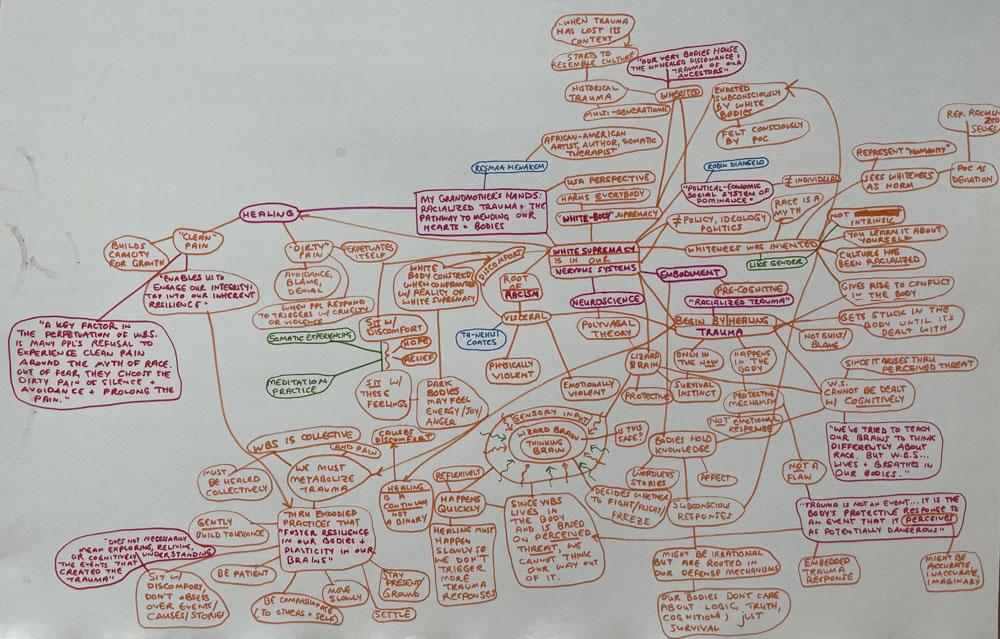 "WHEN TRAUMA
HAS LOST ITS
CONTEXT"
STARTS TO
RESEMBLE CULTURE
HISTORICAL
TRAUMA
MULTI-GENERATIONAL
"OUR VERY BODIES HOUSE
THE UNHEALED DISSONANCE +
TRAUMA OF OUR
ANCESTORS"
INHERITED
ENACTED
SUBCONSCIOUSLY
BY WHITE
BODIES
FELT CONSCIOUSLY
BY POC
AFRICAN-AMERICAN
ARTIST, AUTHOR, SOMATIC
THERAPIST
RESMAA MENAKEM
MY GRANDMOTHER'S HANDS:
RACIALIZED TRAUMA + THE
PATHWAY TO MENDING OUR
HEARTS + BODIES
USA PERSPECTIVE
HARMS EVERYBODY
"WHITE-BODY" SUPREMACY
ROBIN DIANGELO
"POLITICAL-ECONOMIC
SOCIAL SYSTEM OF
DOMINANCE"
≠ INDIVIDUAL
≠ POLICY, IDEOLOGY
POLITICS
RACE IS A
MYTH
REPRESENT "HUMANITY"
SEES WHITENESS
AS NORM
POC AS
DEVIATION
WHITENESS WAS INVENTED
LIKE GENDER
NOT
INTRINSIC
YOU LEARN IT ABOUT
YOURSELF
CULTURE HAS
BEEN RACIALIZED
GIVES RISE TO CONFLICT
IN THE BODY
GETS STUCK IN THE
BODY UNTIL IT'S
DEALT WITH
WHITE SUPREMACY
IS IN OUR
NERVOUS SYSTEMS
EMBODIMENT
PRE-COGNITIVE
"RACIALIZED TRAUMA"
BEGIN BY HEALING
TRAUMA
NEUROSCIENCE
POLYVAGAL
THEORY
HEALING
"CLEAN"
PAIN
BUILDS
CAPACITY
FOR GROWTH
"ENABLES US TO
ENGAGE OUR INTEGRITY:
TAP INTO OUR INHERENT
RESILIENCE"
"A KEY FACTOR IN
THE PERPETUATION OF W.B.S.
IS MANY PPL'S REFUSAL TO
EXPERIENCE CLEAN PAIN
AROUND THE MYTH OF RACE.
OUT OF FEAR, THEY CHOOSE THE
DIRTY PAIN OF SILENCE +
AVOIDANCE + PROLONG THE
PAIN."
"DIRTY"
PAIN
PERPETUATES
ITSELF
AVOIDANCE,
BLAME,
DENIAL
WHEN PPL RESPOND
TO TRIGGERS W/ CRUELTY
OR VIOLENCE
DISCOMFORT
WHITE
BODY CONSTRICTS
WHEN CONFRONTED
W/ REALITY OF
WHITE SUPREMACY
ROOT
OF
RACISM
VISCERAL
TA-NEHISI
COATES
PHYSICALLY
VIOLENT
EMOTIONALLY
VIOLENT
SOMATIC EXPERIENCING
MEDITATION
PRACTICE
SIT W/
DISCOMFORT
HOPE
RELIEF
SIT W/
THESE
FEELINGS
DARK
BODIES
MAY FEEL
ENERGY/JOY/
ANGER
CAUSES
DISCOMFORT
AND PAIN
LIZARD
BRAIN
PROTECTIVE
SURVIVAL
INSTINCT
ONLY IN
THE NOW
HAPPENS
IN THE
BODY
PROTECTIVE
MECHANISM
NOT EMOTIONAL
RESPONSE
NOT GUILT/
BLAME
SINCE IT ARISES THRU
PERCEIVED THREAT
W.S.
CANNOT BE DEALT
W/ COGNITIVELY
"WE'VE TRIED TO TEACH
OUR BRAINS TO THINK
DIFFERENTLY ABOUT
RACE. BUT W.B.S...
LIVES + BREATHES IN
OUR BODIES."
NOT A
FLAW
"TRAUMA IS NOT AN EVENT... IT IS THE
BODY'S PROTECTIVE RESPONSE TO
AN EVENT THAT IT PERCEIVES
AS POTENTIALLY DANGEROUS"
EMBEDDED
TRAUMA
RESPONSE
MIGHT BE
ACCURATE,
INACCURATE,
IMAGINARY
SENSORY INPUT
LIZARD BRAIN
THINKING
BRAIN
IS THIS
SAFE?
DECIDES WHETHER
TO FIGHT/FLIGHT/
FREEZE
BODIES HOLD
KNOWLEDGE
WORDLESS
STORIES
AFFECT
SUBCONSCIOUS
RESPONSES
MIGHT BE IRRATIONAL
BUT ARE ROOTED IN
OUR DEFENSE MECHANISMS
OUR BODIES DON'T CARE
ABOUT LOGIC, TRUTH,
COGNITION, JUST
SURVIVAL
SINCE WBS
LIVES IN
THE BODY
AND IS BASED
ON PERCEIVED
THREAT, WE
CANNOT THINK
OUR WAY OUT
OF IT.
REFLEXIVELY
HAPPENS
QUICKLY
HEALING MUST
HAPPEN
SLOWLY SO
WE DON'T
TRIGGER
MORE
TRAUMA
RESPONSES
HEALING
IS A
CONTINUUM
NOT
A BINARY
WBS IS COLLECTIVE
MUST
BE HEALED
COLLECTIVELY
WE MUST
METABOLIZE
TRAUMA
THRU EMBODIED
PRACTICES THAT
"FOSTER RESILIENCE
IN OUR BODIES +
PLASTICITY IN OUR
BRAINS"
GENTLY
BUILD TOLERANCE
"DOES NOT NECESSARILY
MEAN EXPLORING, RELIVING,
OR COGNITIVELY UNDERSTANDING
THE EVENTS THAT
CREATED THE
TRAUMA"
SIT W/
DISCOMFORT,
DON'T OBSESS
OVER EVENTS/
CAUSES/STORIES
BE PATIENT
BE COMPASSIONATE
(TO OTHERS + SELF)
MOVE
SLOWLY
SETTLE
STAY
PRESENT/
GROUND